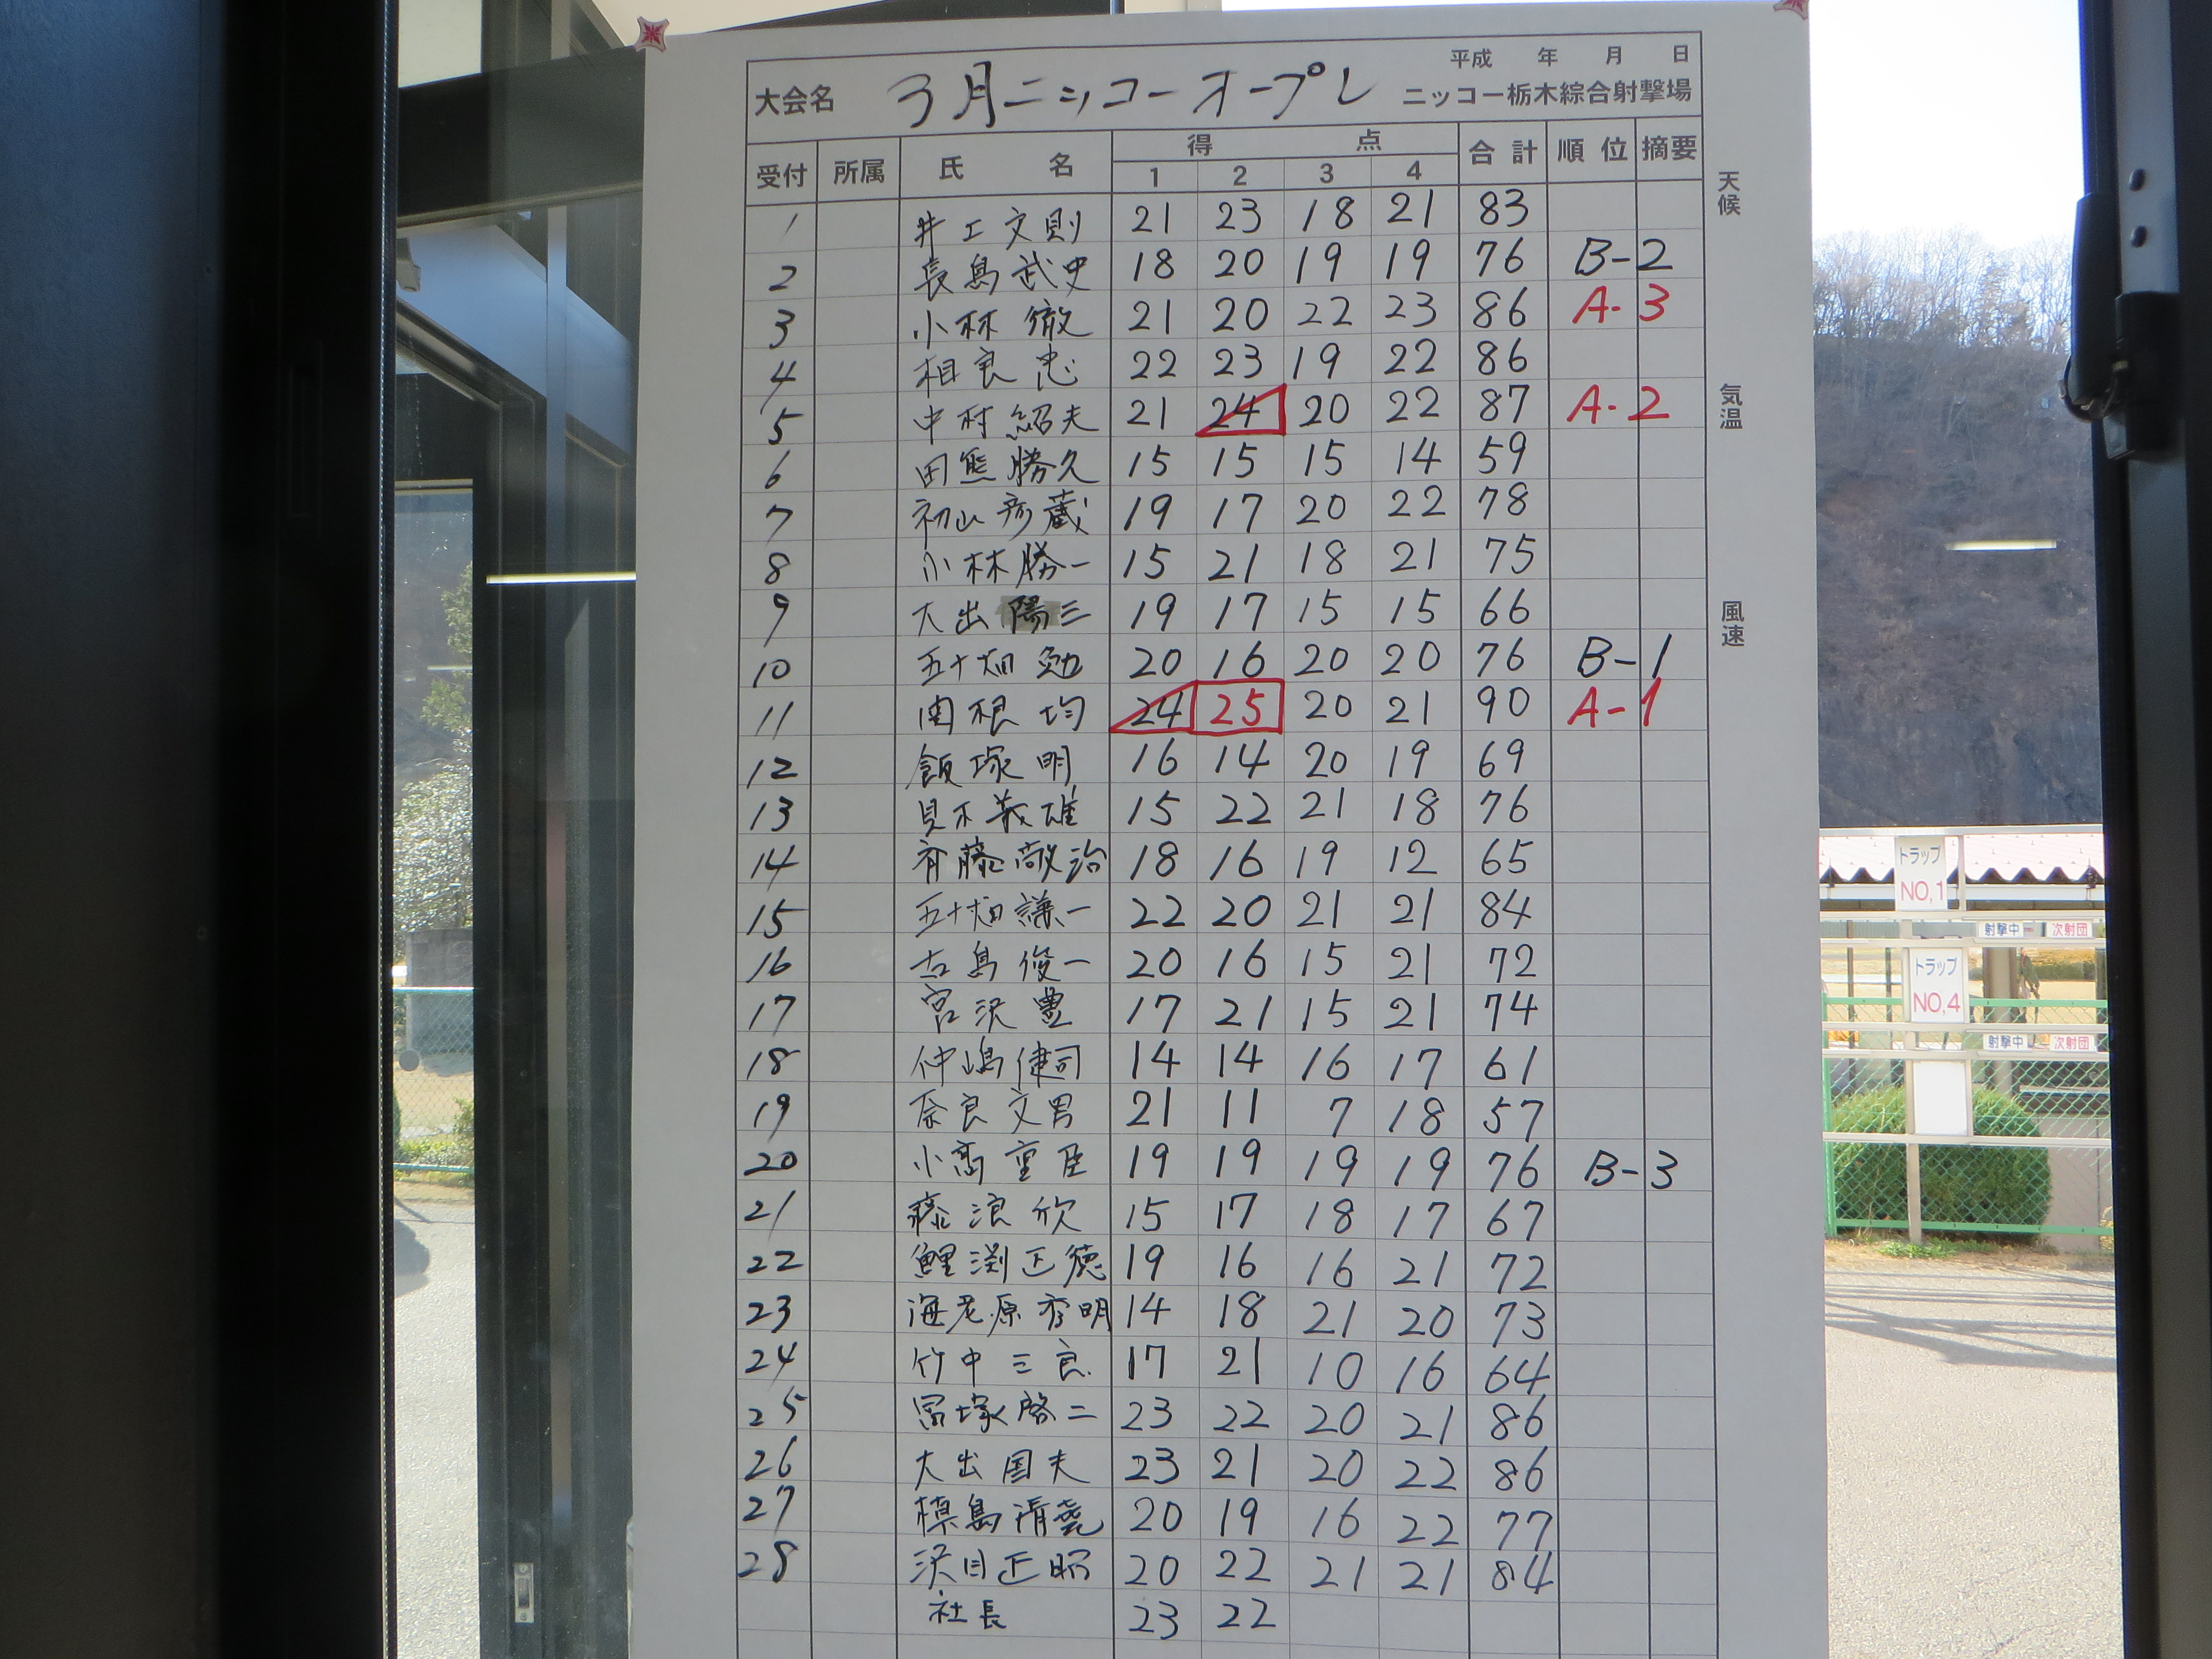 平成 年 月 日
大会名 3月ニッコーオープン ニッコー栃木綜合射撃場
受付 所属 氏名 得点 合計 順位 摘要
1 2 3 4
1 井工文則 21 23 18 21 83
2 長島武史 18 20 19 19 76 B-2
3 小林徹 21 20 22 23 86 A-3
4 相良忠 22 23 19 22 86
5 中村紹夫 21 24 20 22 87 A-2
6 田熊勝久 15 15 15 14 59
7 初山彦蔵 19 17 20 22 78
8 小林勝一 15 21 18 21 75
9 大出陽三 19 17 15 15 66
10 五十畑勉 20 16 20 20 76 B-1
11 関根均 24 25 20 21 90 A-1
12 飯塚明 16 14 20 19 69
13 見木義雄 15 22 21 18 76
14 斉藤敬治 18 16 19 12 65
15 五十畑謙一 22 20 21 21 84
16 古島俊一 20 16 15 21 72
17 宮沢豊 17 21 15 21 74
18 仲嶋健司 14 14 16 17 61
19 奈良文男 21 11 7 18 57
20 小高重臣 19 19 19 19 76 B-3
21 藤浪欣 15 17 18 17 67
22 鯉渕正徳 19 16 16 21 72
23 海老原秀明 14 18 21 20 73
24 竹中三良 17 21 10 16 64
25 冨塚啓二 23 22 20 21 86
26 大出国夫 23 21 20 22 86
27 島清 20 19 16 22 77
28 沢目正昭 20 22 21 21 84
社長 23 22
天候
気温
風速
トラップ
NO,1
射撃中 次射団
トラップ
NO,4
射撃中 次射団